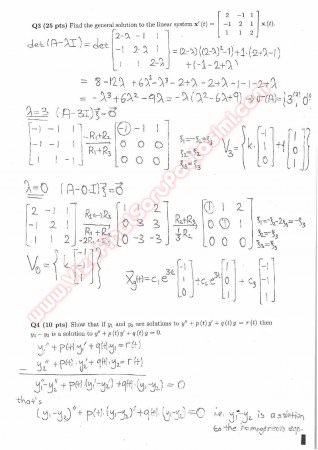 Q3 (25 pts) Find the general solution to the linear system x'(t) = [2 -1 1; -1 2 1; 1 1 2] x(t).
det(A-λI) = det [2-λ -1 1; -1 2-λ 1; 1 1 2-λ] = (2-λ)((2-λ)²-1)+1·(2+λ-1)
+(-1-2+λ)
= 8-12λ+6λ²-λ³-2+λ-2+λ-1-1-2+λ
= -λ³+6λ²-9λ = -λ(λ²-6λ+9) ⇒ σ(A)={3⁽²⁾,0}
λ=3 (A-3I)ξ=0
[-1 -1 1; -1 -1 1; 1 1 -1] -R1+R2 R1+R3 [-1 -1 1; 0 0 0; 0 0 0] ξ1=-ξ2+ξ3 ξ2=ξ2 ξ3=ξ3 V3={k·[-1; 1; 0]+t[1; 0; 1]}
λ=0 (A-0·I)ξ=0
[2 -1 1; -1 2 1; 1 1 2] R1↔R3 R1+R2 -2R1+R3 [1 1 2; 0 3 3; 0 -3 -3] R2+R3 ⅓R2 [1 1 2; 0 1 1; 0 0 0] ξ1=-ξ2-2ξ3=-ξ3 ξ2=-ξ3 ξ3=ξ3
V0={k·[-1; -1; 1]} Xg(t)=c1e^{3t}[-1; 1; 0]+c2e^{3t}[1; 0; 1]+c3[-1; -1; 1]
Q4 (10 pts) Show that if y1 and y2 are solutions to y''+p(t)y'+q(t)y=r(t) then
y1-y2 is a solution to y''+p(t)y'+q(t)y=0.
y1''+p(t)y1'+q(t)y1=r(t)
y2''+p(t)·y2'+q(t)y2=r(t)
y1''-y2''+p(t)·(y1'-y2')+q(t)·(y1-y2)=0
that's
(y1-y2)''+p(t)·(y1-y2)'+q(t)·(y1-y2)=0 i.e. y1-y2 is a solution
to the homogeneous eqn.